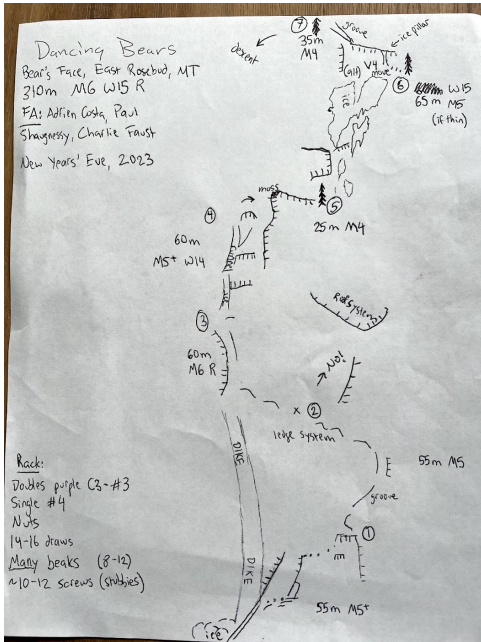 Dancing Bears
Bear's Face, East Rosebud, MT
310m M6 WI5 R
FA: Adrien Costa, Paul
Shaugnessy, Charlie Faust
New Years' Eve, 2023
7
35m
M4
descent
groove
ice pillar
(alt)
V4
move
6
WI5
65m M5
(if thin)
ice
5
25m M4
moss
4
60m
M5+ WI4
Roof system
3
60m
M6 R
NO!
x 2
ledge system
55m M5
groove
DIKE
DIKE
1
55m M5+
ice
Rack:
Doubles purple C3-#3
Single #4
Nuts
14-16 draws
Many beaks (8-12)
~10-12 screws (stubbies)